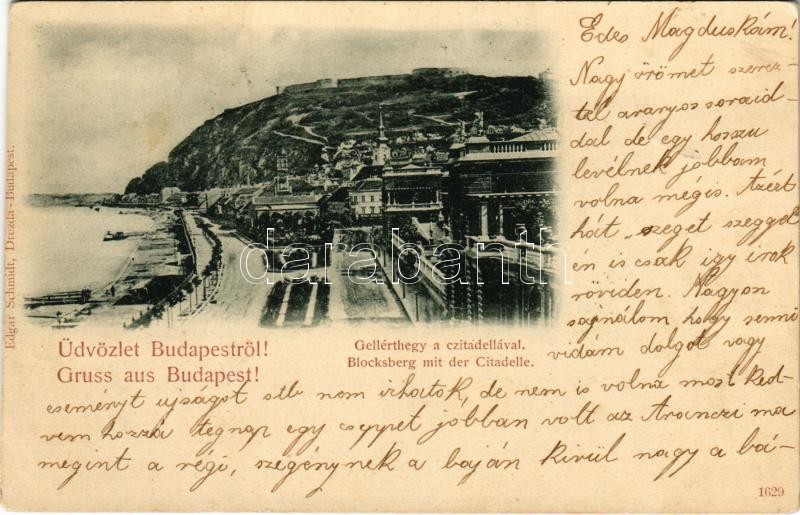 Édes Magduskám!
Nagy örömet szerez-
tél aranyos soraid-
dal de egy hosszu
levélnek jobbam
volna mégis. Azért
hát „szeget szeggel
én is csak igy irok
röviden. Nagyon
sajnálom hogy semmi
vidám dolgot vagy
eseményt ujságot stb nem irhatok, de nem is volna most ked-
vem hozzá tegnap egy csyppet jobban volt az Aranczi ma
megint a régi, szegénynek a baján kivül nagy a bá-
Üdvözlet Budapeströl!
Gruss aus Budapest!
Gellérthegy a czitadellával.
Blocksberg mit der Citadelle.
Edgar Schmidt, Drezda-Budapest.
1629
darabanth